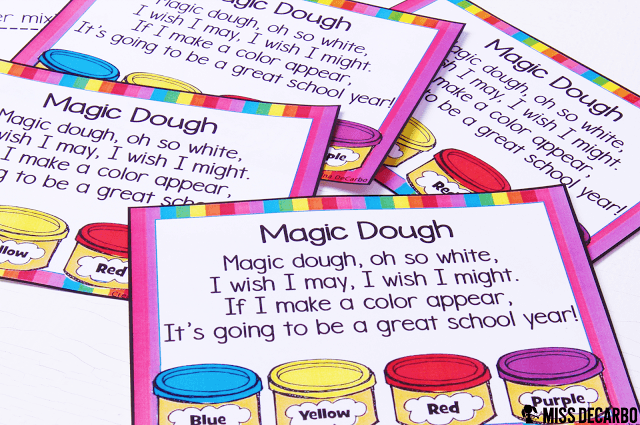 er mix
Magic Dough
Magic dough, oh so white,
I wish I may, I wish I might.
If I make a color appear,
It's going to be a great school year!
ple
Miss DeCarbo
Magic Dough
Magic dough, oh so white,
I wish I may, I wish I might.
I make a color appear,
to be a great school year!
Red
Magic Dough
Magic dough, oh so white,
wish I may, I wish I might.
I make a color appear,
ng to be a great scho
Yellow
Red
Magic Dough
Magic dough, oh so white,
I wish I may, I wish I might.
If I make a color appear,
It's going to be a great school year!
Blue
Yellow
Red
Purple
MISS DECARBO